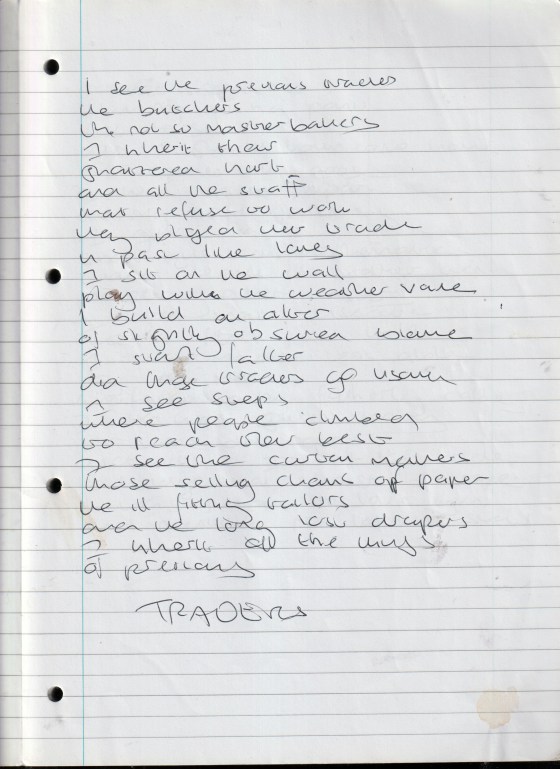 I see the previous traders
the butchers
the not so master bakers
I inherit their
shattered
and all the stuff
that refuse to work
they their trade
in past like
I sit on the wall
play with the weather vane
I build an alter
of slightly obscured
I start falter
did those traders go
I see steps
where people climbed
to reach their best
I see the curtain makers
those selling chains of paper
the ill fitting tailors
and the long lost drapers
I inherit all the
of previous
TRADERS